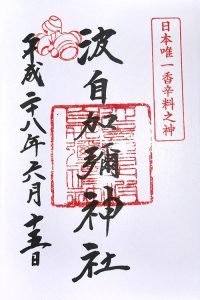 日本唯一香辛料之神
波自加彌神社
平成二十八年六月十五日